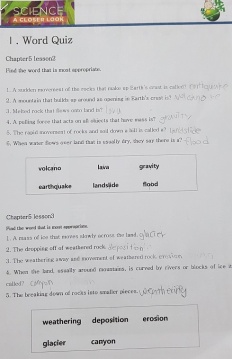 SCIENCE
A CLOSER LOOK
1. Word Quiz
Chapter5 lesson2
Find the word that is most appropriate.
1. A sudden movement of the rocks that make up Earth's crust is called? earthquake
2. A mountain that builds up around an opening in Earth's crust is? volcano
3. Melted rock that flows onto land is? lava
4. A pulling force that acts on all objects that have mass is? gravity
5. The rapid movement of rocks and soil down a hill is called a? landslide
6. When water flows over land that is usually dry, they say there is a? flood
volcano lava gravity
earthquake landslide flood
Chapter5 lesson3
Find the word that is most appropriate.
1. A mass of ice that moves slowly across the land. glacier
2. The dropping off of weathered rock. deposition
3. The weathering away and movement of weathered rock. erosion
4. When the land, usually around mountains, is carved by rivers or blocks of ice it
called? canyon
5. The breaking down of rocks into smaller pieces. weathering
weathering deposition erosion
glacier canyon